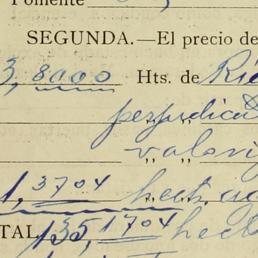 Fomente
SEGUNDA.—El precio de
3,8000 Hts. de
perjudica
valori
1,3704 hect.
TAL 135,1704 hect